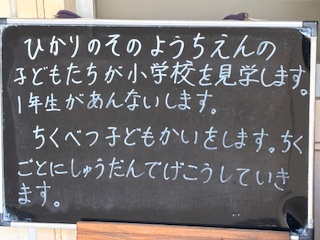 ひかりのそのようちえんの
子どもたちが小学校を見学します。
1年生があんないします。
ちくべつ子どもかいをします。ちく
ごとにしゅうだんでげこうしていき
ます。